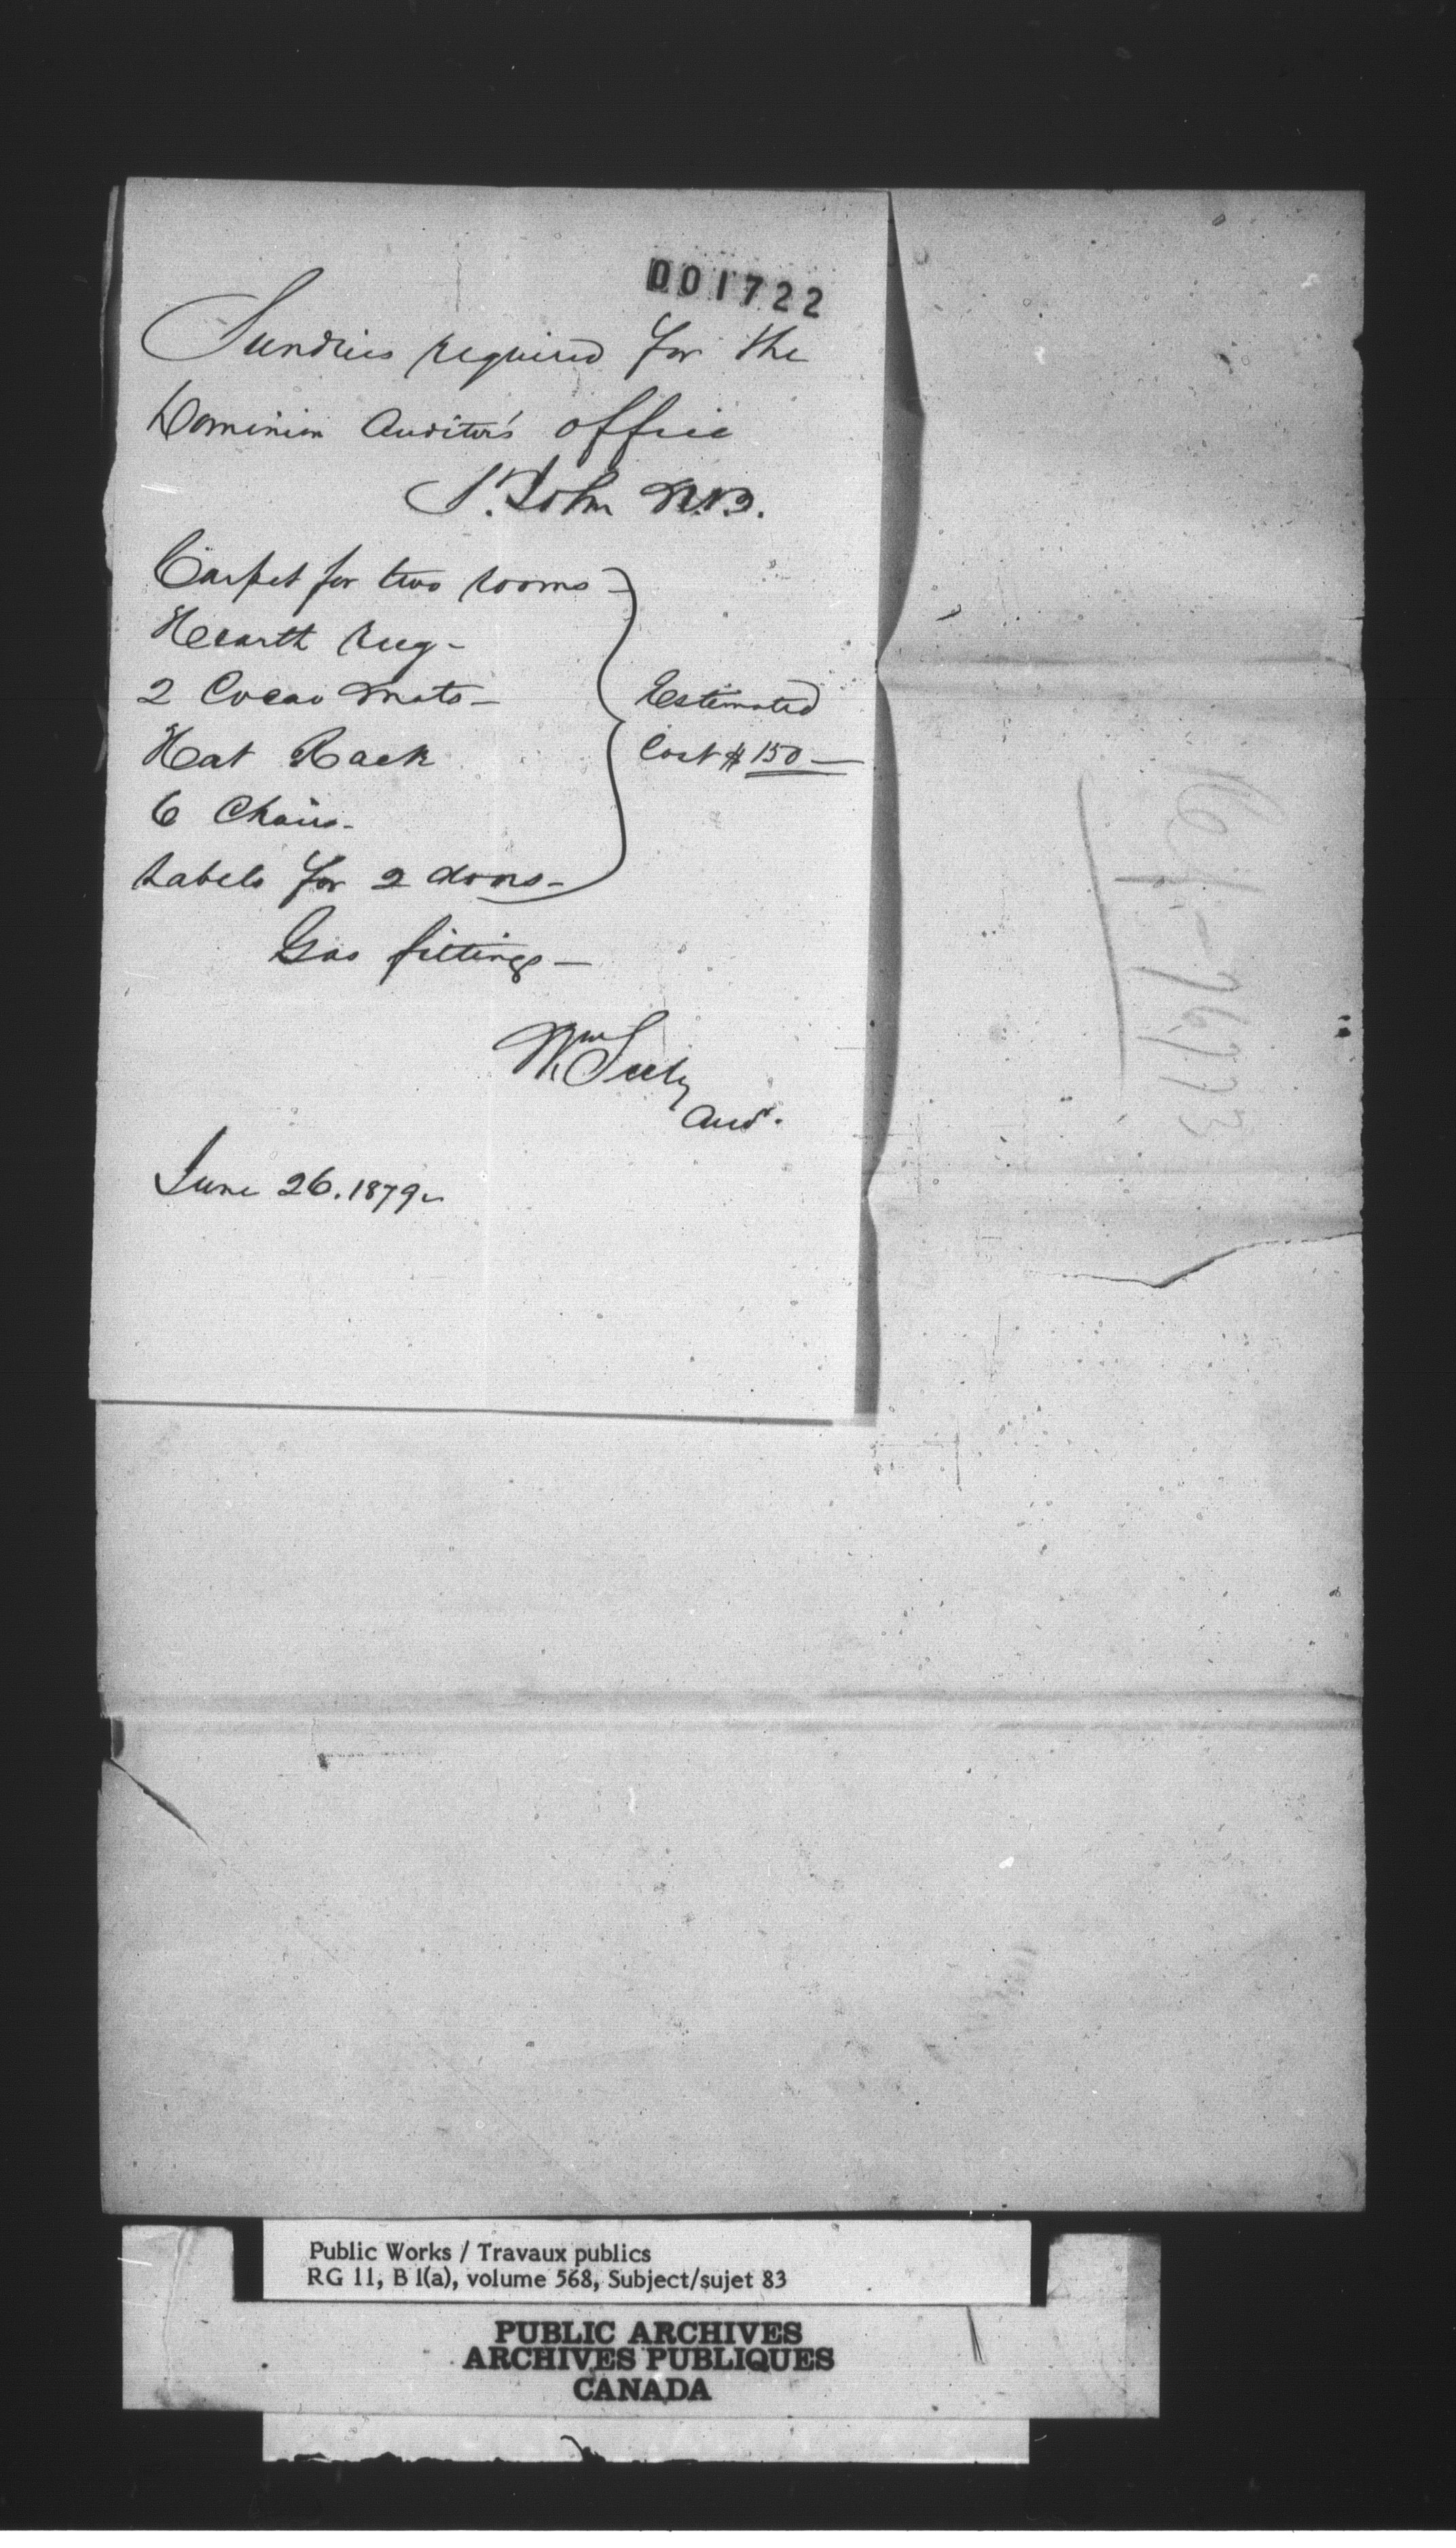 001722
Sundries required for the
Dominion Auditor's office
St. John N.B.
Carpet for two rooms -
Hearth rug -
2 Cocao mats -
Hat Rack
6 Chairs -
Labels for 2 doors -
Estimated
Cost $ 150 —
Gas fittings —
Wm Seely
Audr.
June 26. 1879
Public Works / Travaux publics
RG 11, B 1(a), volume 568, Subject/sujet 83
PUBLIC ARCHIVES
ARCHIVES PUBLIQUES
CANADA